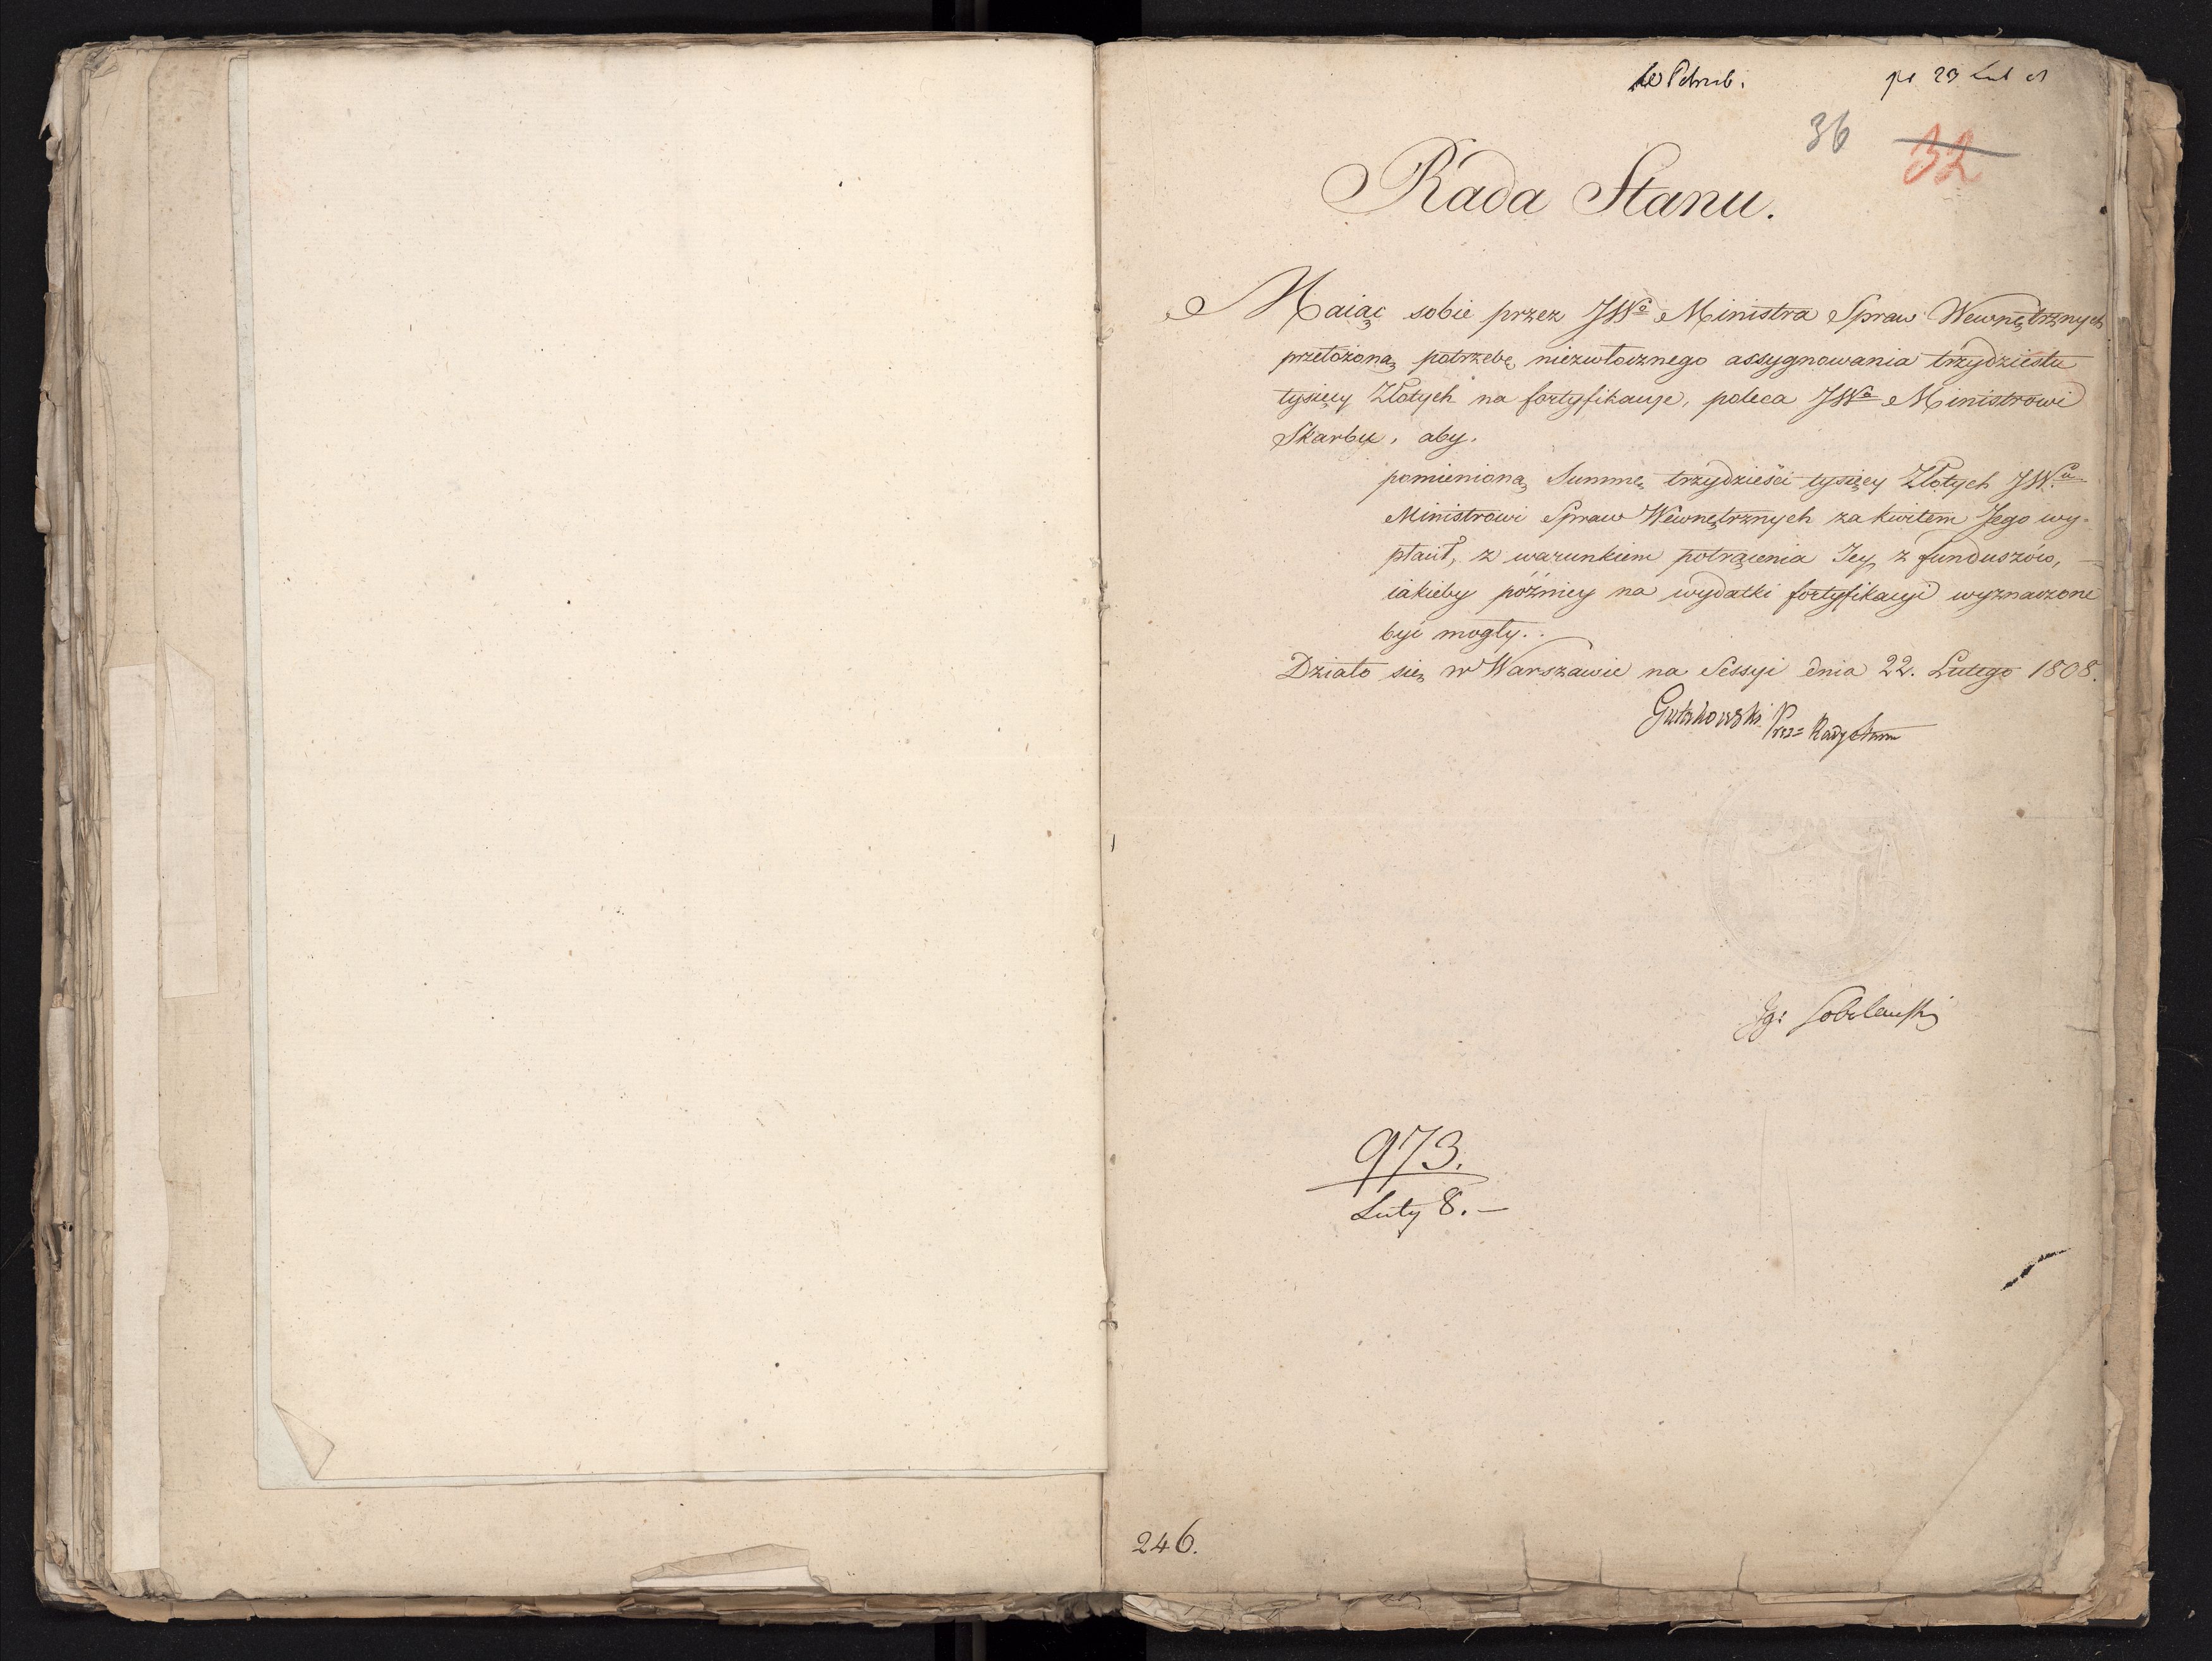 36 32
Rada Stanu.
Maiąc sobie przez JWo Ministra Spraw Wewnętrznych
przełożoną potrzebę niezwłocznego assygnowania trzydziestu
tysięcy Złotych na fortyfikacye, poleca JWo Ministrowi
Skarbu, aby.
pomienioną Summę trzydzieści tysięcy Złotych JWu
Ministrowi Spraw Wewnętrznych za kwitem Jego wy-
płacił, z warunkiem potrącenia Jey z funduszów, —
iakieby późniey na wydatki fortyfikacyi wyznaczone
być mogły..
Działo się w Warszawie na Sessyi dnia 22. Lutego 1808.
Gutakowski Prez= Rady Stanu
Ig: Sobolewski
973.
Luty 8. —
246.